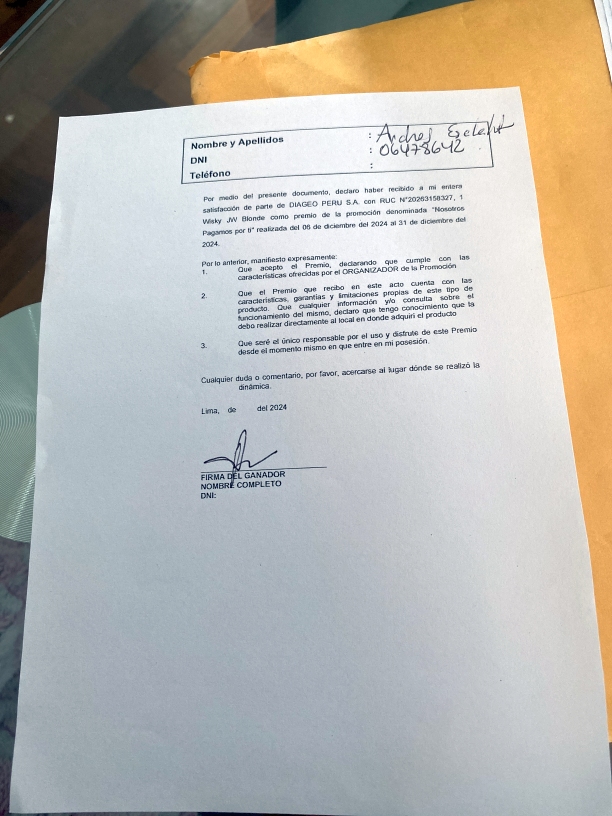 Nombre y Apellidos : Andres
DNI : 06478642
Teléfono :
Por medio del presente documento, declaro haber recibido a mi entera
satisfacción de parte de DIAGEO PERU S.A. con RUC N°20263158327, 1
Wisky JW Blonde como premio de la promoción denominada "Nosotros
Pagamos por ti" realizada del 06 de diciembre del 2024 al 31 de diciembre del
2024.
Por lo anterior, manifiesto expresamente:
1. Que acepto el Premio, declarando que cumple con las
características ofrecidas por el ORGANIZADOR de la Promoción
2. Que el Premio que recibo en este acto cuenta con las
características, garantías y limitaciones propias de este tipo de
producto. Que cualquier información y/o consulta sobre el
funcionamiento del mismo, declaro que tengo conocimiento que la
debo realizar directamente al local en donde adquirí el producto
3. Que seré el único responsable por el uso y disfrute de este Premio
desde el momento mismo en que entre en mi posesión.
Cualquier duda o comentario, por favor, acercarse al lugar dónde se realizó la
dinámica.
Lima, de del 2024
FIRMA DEL GANADOR
NOMBRE COMPLETO
DNI: